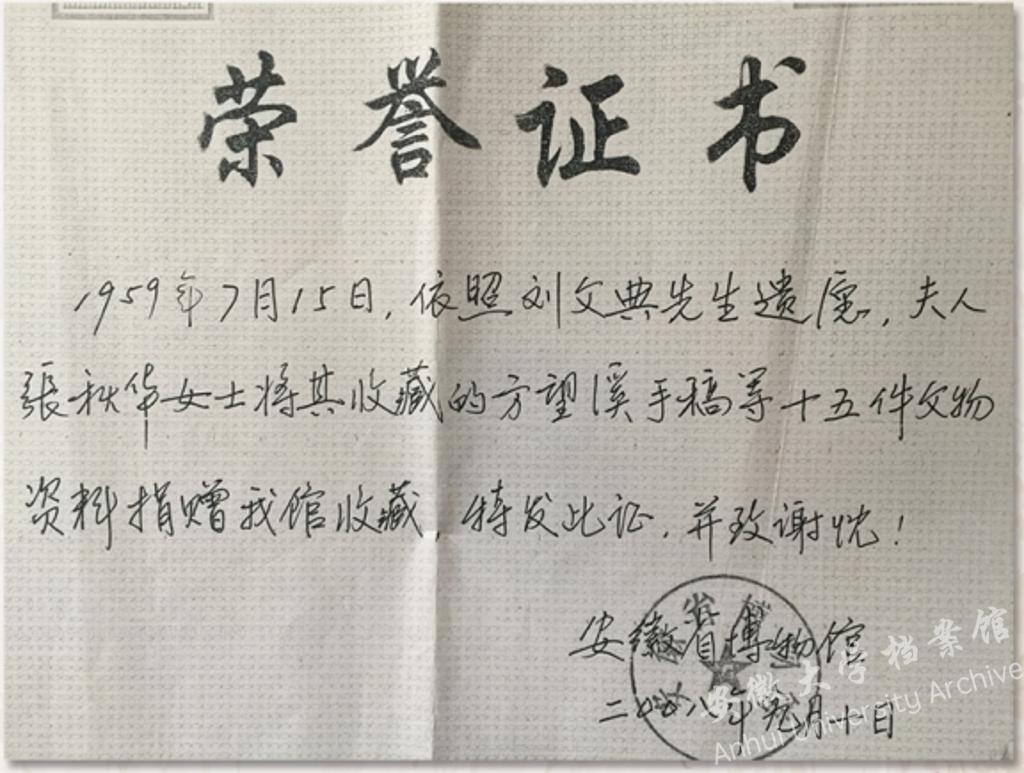 荣誉证书
1959年7月15日,依照刘文典先生遗愿,夫人
張秋华女士将其收藏的方望溪手稿等十五件文物
资料捐赠我馆收藏,特发此证,并致谢忱!
安徽省博物馆
二〇〇八年九月十日
安徽大学档案馆
Anhui University Archive